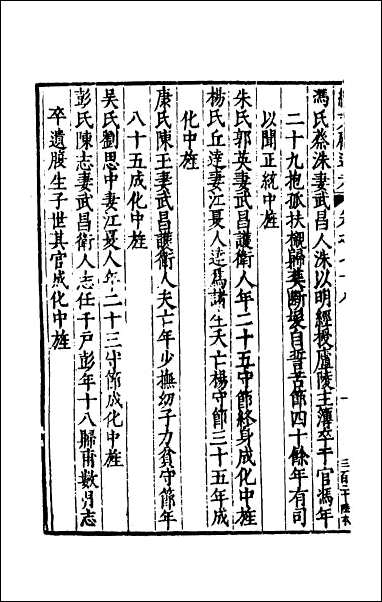 馮氏蔡洙妻武昌人洙以明經授廬陵主簿卒于官馮年
二十九抱孤扶櫬歸葬斷髮自誓苦節四十餘年有司
以聞正統中旌
朱氏郭英妻武昌護衛人年二十五守節終身成化中旌
楊氏丘逵妻江夏人逵爲諸生夭亡楊守節三十五年成
化中旌
康氏陳王妻武昌護衛人夫亡年少撫幼子力貧守節年
八十五成化中旌
吳氏劉思中妻江夏人年二十三守節成化中旌
彭氏陳志妻武昌衛人志任千戶彭年十八歸甫數月志
卒遺腹生子世其官成化中旌